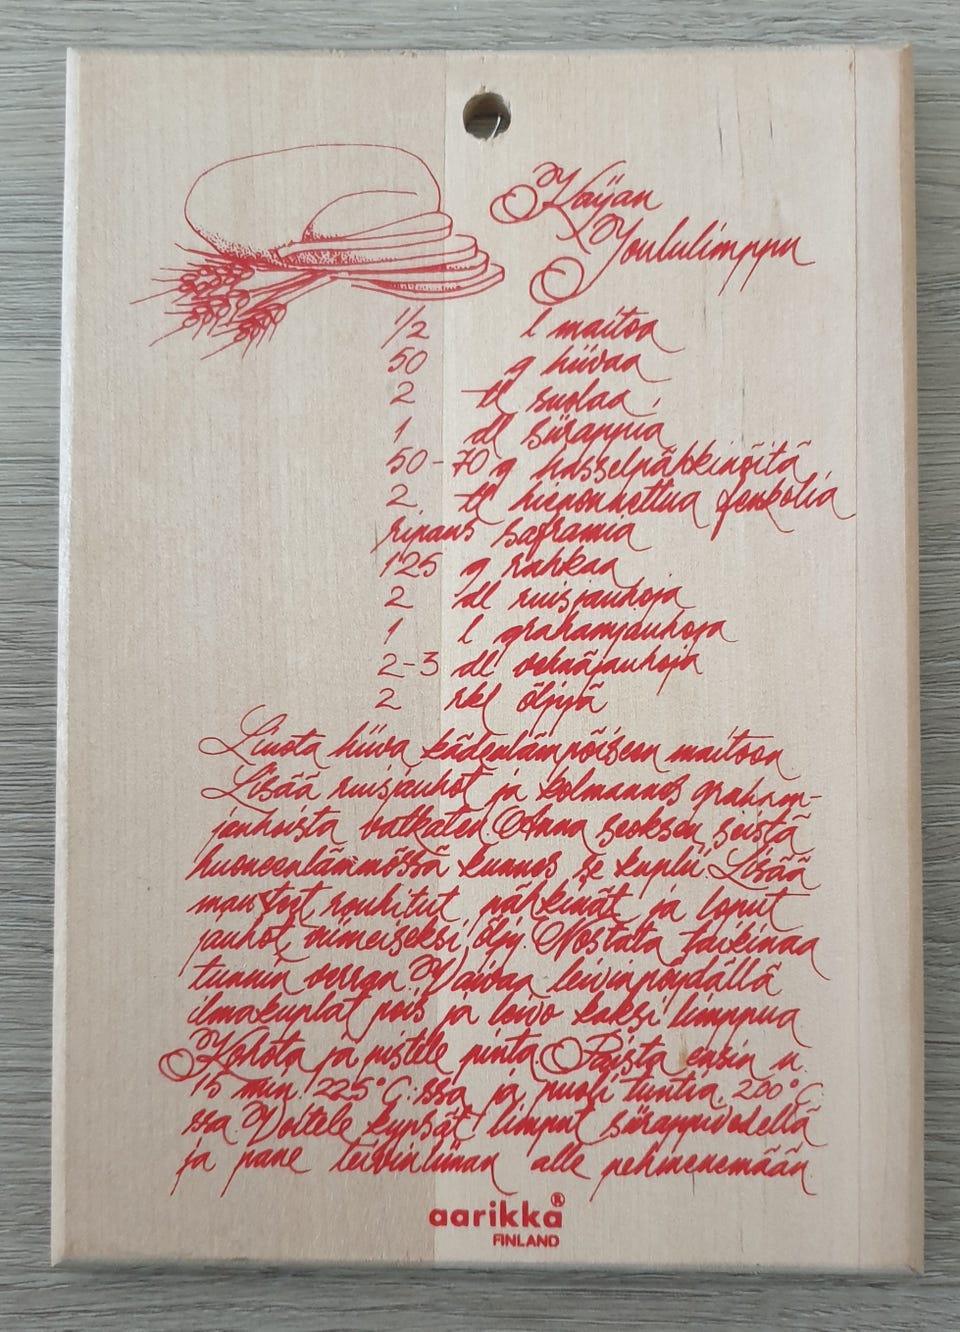 Kaijan
Joululimppu
1/2 l maitoa
50 g hiivaa
2 tl suolaa
1 dl siirappia
50-70 g hasselpähkinöitä
2 tl hienonnettua fenkolia
ripaus saframia
125 g rahkaa
2 dl ruisjauhoja
1 l grahamjauhoja
2-3 dl vehnäjauhoja
2 rkl öljyä
Liuota hiiva kädenlämpöiseen maitoon
Lisää ruisjauhot ja kolmannes graham-
jauhoista vatkaten. Anna seoksen seistä
huoneenlämmössä kunnes se kuplii. Lisää
mausteet, rouhitut pähkinät ja loput
jauhot, viimeiseksi öljy. Nostata taikinaa
tunnin verran. Vaivaa leivinpöydällä
ilmakuplat pois ja leivo kaksi limppua
Kohota ja pistele pinta. Paista ensin n.
15 min. 225°C:ssa ja puoli tuntia 200°C:
ssa. Voitele kypsät limput siirappivedellä
ja pane leivinliinan alle pehmenemään.
aarikka®
FINLAND